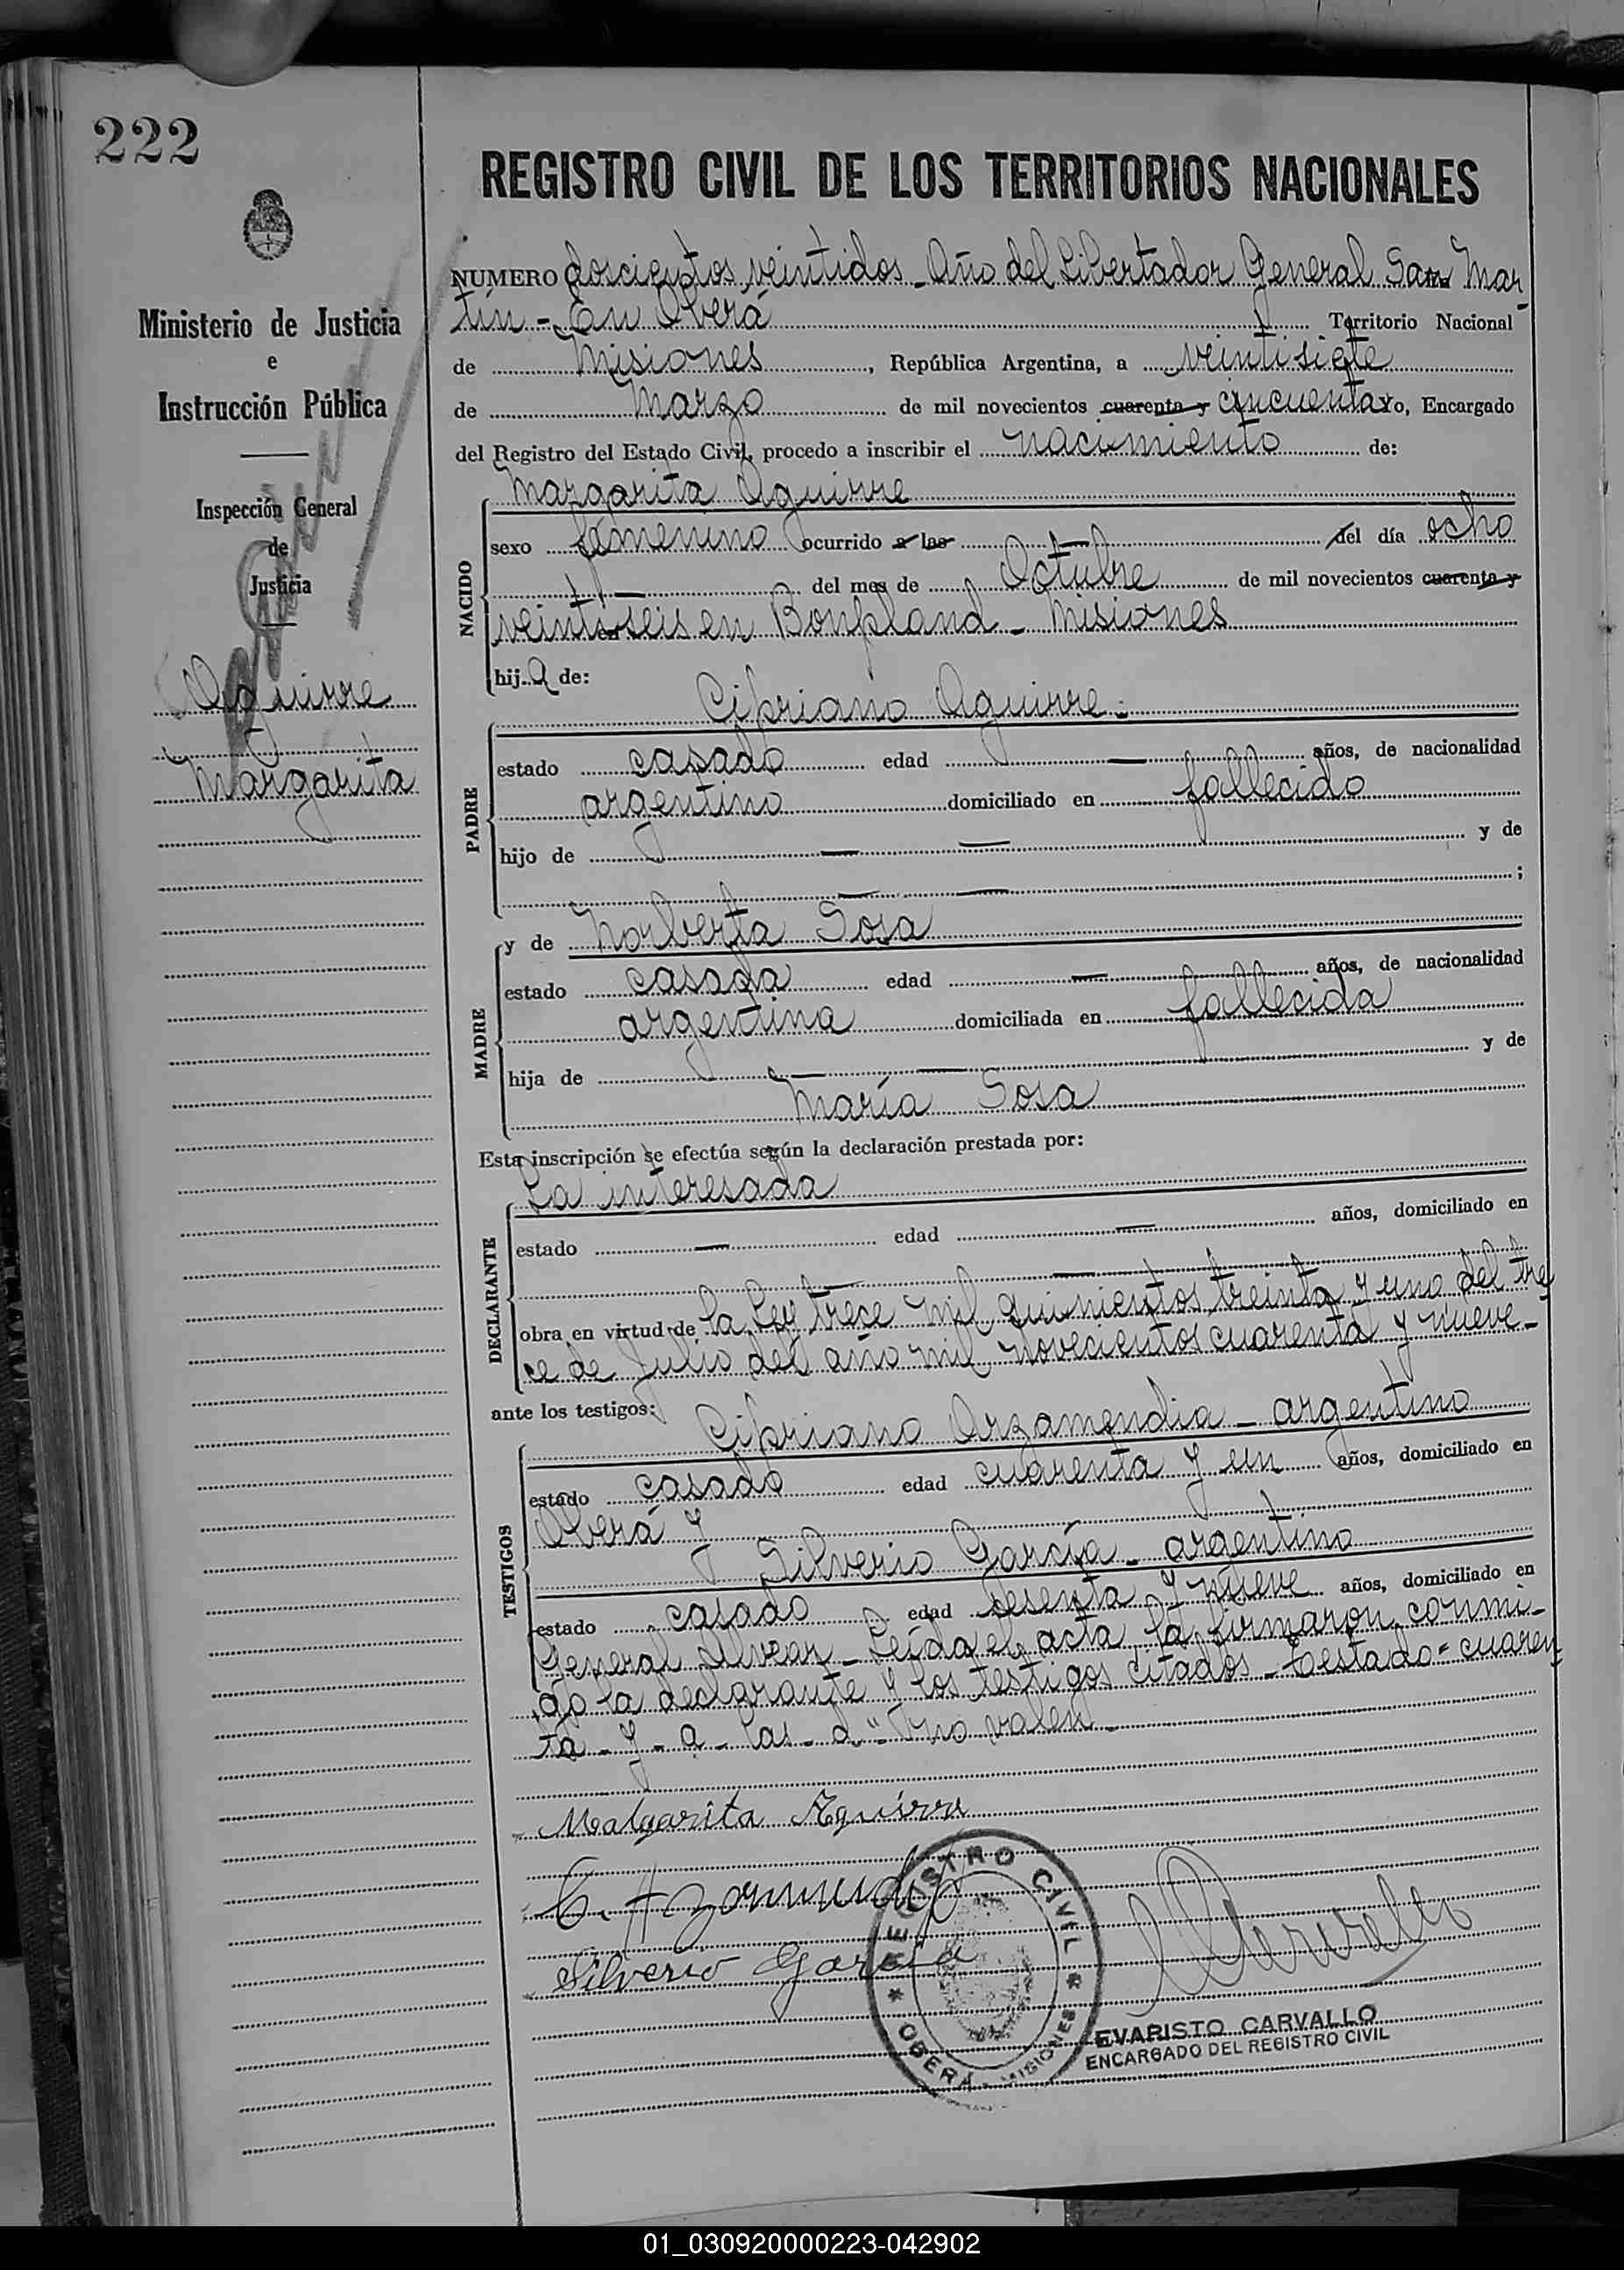 222
REGISTRO CIVIL DE LOS TERRITORIOS NACIONALES
Ministerio de Justicia
e
Instrucción Pública
Inspección General
de
Justicia
Aguirre
Margarita
NUMERO doscientos veintidos - Año del Libertador General San Mar-
tín - En Oberá Territorio Nacional
de Misiones, República Argentina, a veintisiete
de Marzo de mil novecientos cuarenta y cincuenta yo, Encargado
del Registro del Estado Civil, procedo a inscribir el nacimiento de:
NACIDO
Margarita Aguirre
sexo femenino ocurrido a las — del día ocho
— del mes de Octubre de mil novecientos cuarenta y
veintiseis en Bonpland - Misiones
hija de:
PADRE
Cipriano Aguirre.
estado casado edad — años, de nacionalidad
argentino domiciliado en fallecido
hijo de — — y de
— — ;
MADRE
y de Norberta Sosa
estado casada edad — años, de nacionalidad
argentina domiciliada en fallecida
hija de — — y de
María Sosa
Esta inscripción se efectúa según la declaración prestada por:
DECLARANTE
La interesada
estado — edad — años, domiciliado en
— —
obra en virtud de la Ley trece mil quinientos treinta y uno del tre
ce de Julio del año mil novecientos cuarenta y nueve -
ante los testigos:
TESTIGOS
Cipriano Arzamendia - argentino
estado casado edad cuarenta y un años, domiciliado en
Oberá y
Silverio García - argentino
estado casado edad sesenta y nueve años, domiciliado en
General Alvear - Leída el acta la firmaron conmi-
go la declarante y los testigos citados - Testado = cuaren
ta - y - a - las - d" - no valen -
Malgarita Aguirre
Silverio Garcia
REGISTRO CIVIL
* OBERÁ - MISIONES *
EVARISTO CARVALLO
ENCARGADO DEL REGISTRO CIVIL
01_030920000223-042902